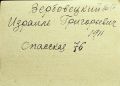 Вербовецкий
Израиль Григорьевич
1911
Спасская 76